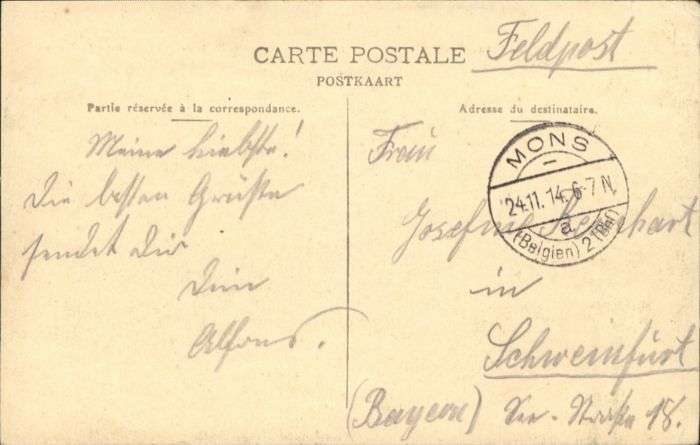 CARTE POSTALE
POSTKAART
Feldpost
Partie réservée à la correspondance.
Adresse du destinataire.
Meine Liebste!
Die besten Grüße
sendet dir
Dein
Alfons.
Frau
Josefine
in
Schweinfurt
(Bayern) Straße 18.
MONS
24.11.14. 6-7 N.
a
(Belgien)